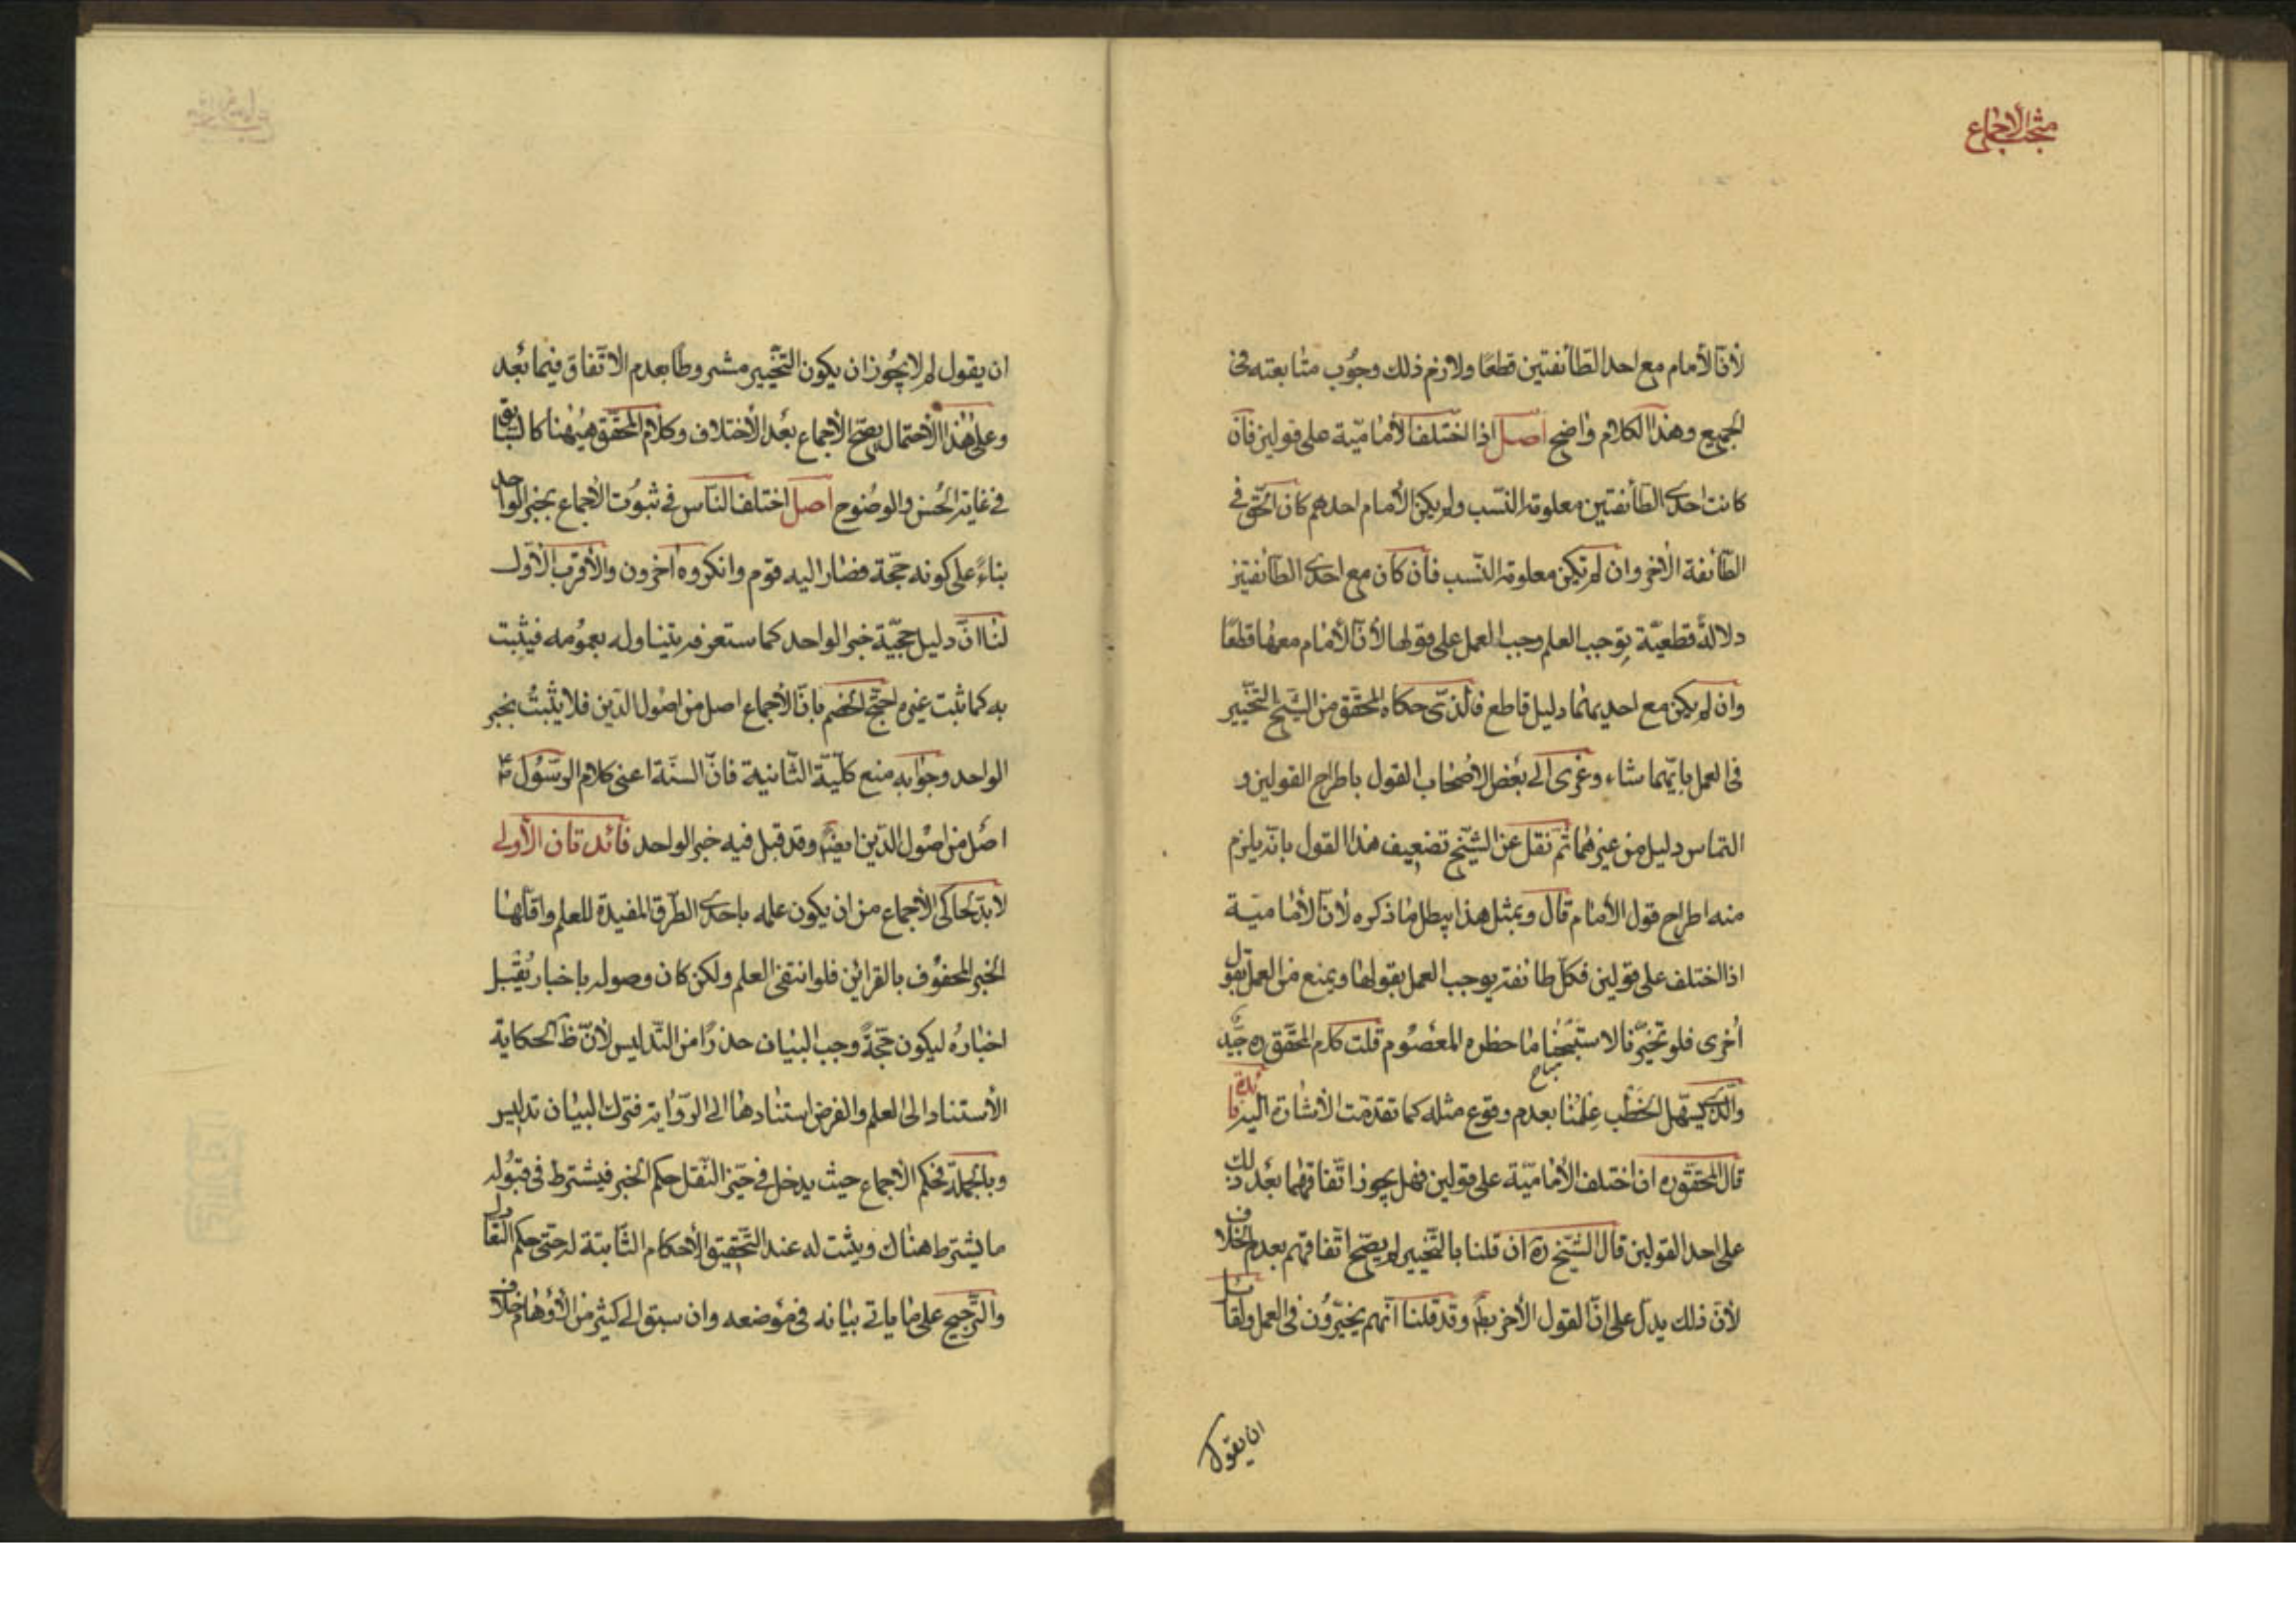 مبحث الاجماع
لأنّ الأمام مع احد الطّائفتين قطعًا ولازم ذلك وجوب متابعته فى
الجميع وهذا الكلام واضح اصل اذا اختلف الأماميّة على قولين فأن
كانت احدى الطّائفتين معلومة النّسب ولم يكن الأمام احدهم كان الحقّ فى
الطّائفة الأخر وان لم تكن معلومة النّسب فأن كان مع احدى الطائفتين
دلالةٌ قطعيّة توجب العلم وجب العمل على قولها لأنّ الأمام معها قطعًا
وان لم يكن مع احديهما دليل قاطع فالّذى حكاه المحقّق من الشّيخ التّخيير
فى العمل بايّهما شاء وعزى الى بعض الأصحاب القول باطراح القولين و
التماس دليل من غيرهما ثم نقل عن الشّيخ تضعيف هذا القول بانّه يلزم
منه اطراح قول الأمام قال وبمثل هذا يبطل ما ذكره لأنّ الأماميّة
اذا اختلف على قولين فكلّ طائفة يوجب العمل بقولها ويمنع من العمل بقول
أخرى فلو تخيّرنا لاستبحنا ما حظره المعصوم قلت كلام المحقّق ره جيّد
والّذى يسهّل الخطب علمنا بعدم وقوع مثله كما تقدّمت الأشارة اليه فائدة
قال المحقّق ره ان اختلف الأماميّة على قولين فهل يجوز اتّفاقهما بعد ذلك
على احد القولين قال الشّيخ ره ان قلنا بالتّخيير لم يصحّ اتّفاقهم بعدم الخلاف
لأنّ ذلك يدلّ على انّ القول الأخر بط وقد قلنا انّهم يخيّرون فى العمل ولقائل
ان يقول
ان يقول لم لا يجوز ان يكون التّخيير مشروطًا بعدم الاتّفاق فيما بعد
وعلى هذا الأحتمال يصحّ الأجماع بعد الأختلاف وكلام المحقّق هيهنا كالسّابق
فى غاية الحسن والوضوح اصل اختلف النّاس فى ثبوت الأجماع بخبر الواحد
بناءً على كونه حجّة فصار اليه قوم وانكروه آخرون والأقرب الأوّل
لنا انّ دليل حجيّة خبر الواحد كما ستعرفه يتناوله بعمومه فيثبت
به كما ثبت غيره احتجّ الخصم بانّ الأجماع اصل من اصول الدّين فلا يثبت بخبر
الواحد وجوابه منع كلّيّة الثّانية فانّ السنّة اعنى كلام الرّسول ص
اصل من اصول الدّين ايضا وقد قبل فيه خبر الواحد فائدتان الأولى
لا بدّ لحاكى الأجماع من ان يكون علمه باحدى الطّرق المفيدة للعلم واقلّها
الخبر المحفوف بالقرائن فلو انتفى العلم ولكن كان وصوله باخبار يقبل
اخباره ليكون حجّةً وجب البيان حذرًا من التّدليس لأنّ ظ الحكاية
الأستناد الى العلم والفرض استنادها الى الرّواية فترك البيان تدليس
وبالجملة فحكم الأجماع حيث يدخل فى حيّز النّقل حكم الخبر فيشترط فى قبوله
ما يشترط هناك ويثبت له عند التّحقيق الأحكام الثّابتة له حتى حكم التّعادل
والتّرجيح على ما ياتى بيانه فى موضعه وان سبق الى كثير من الأوهام خلاف